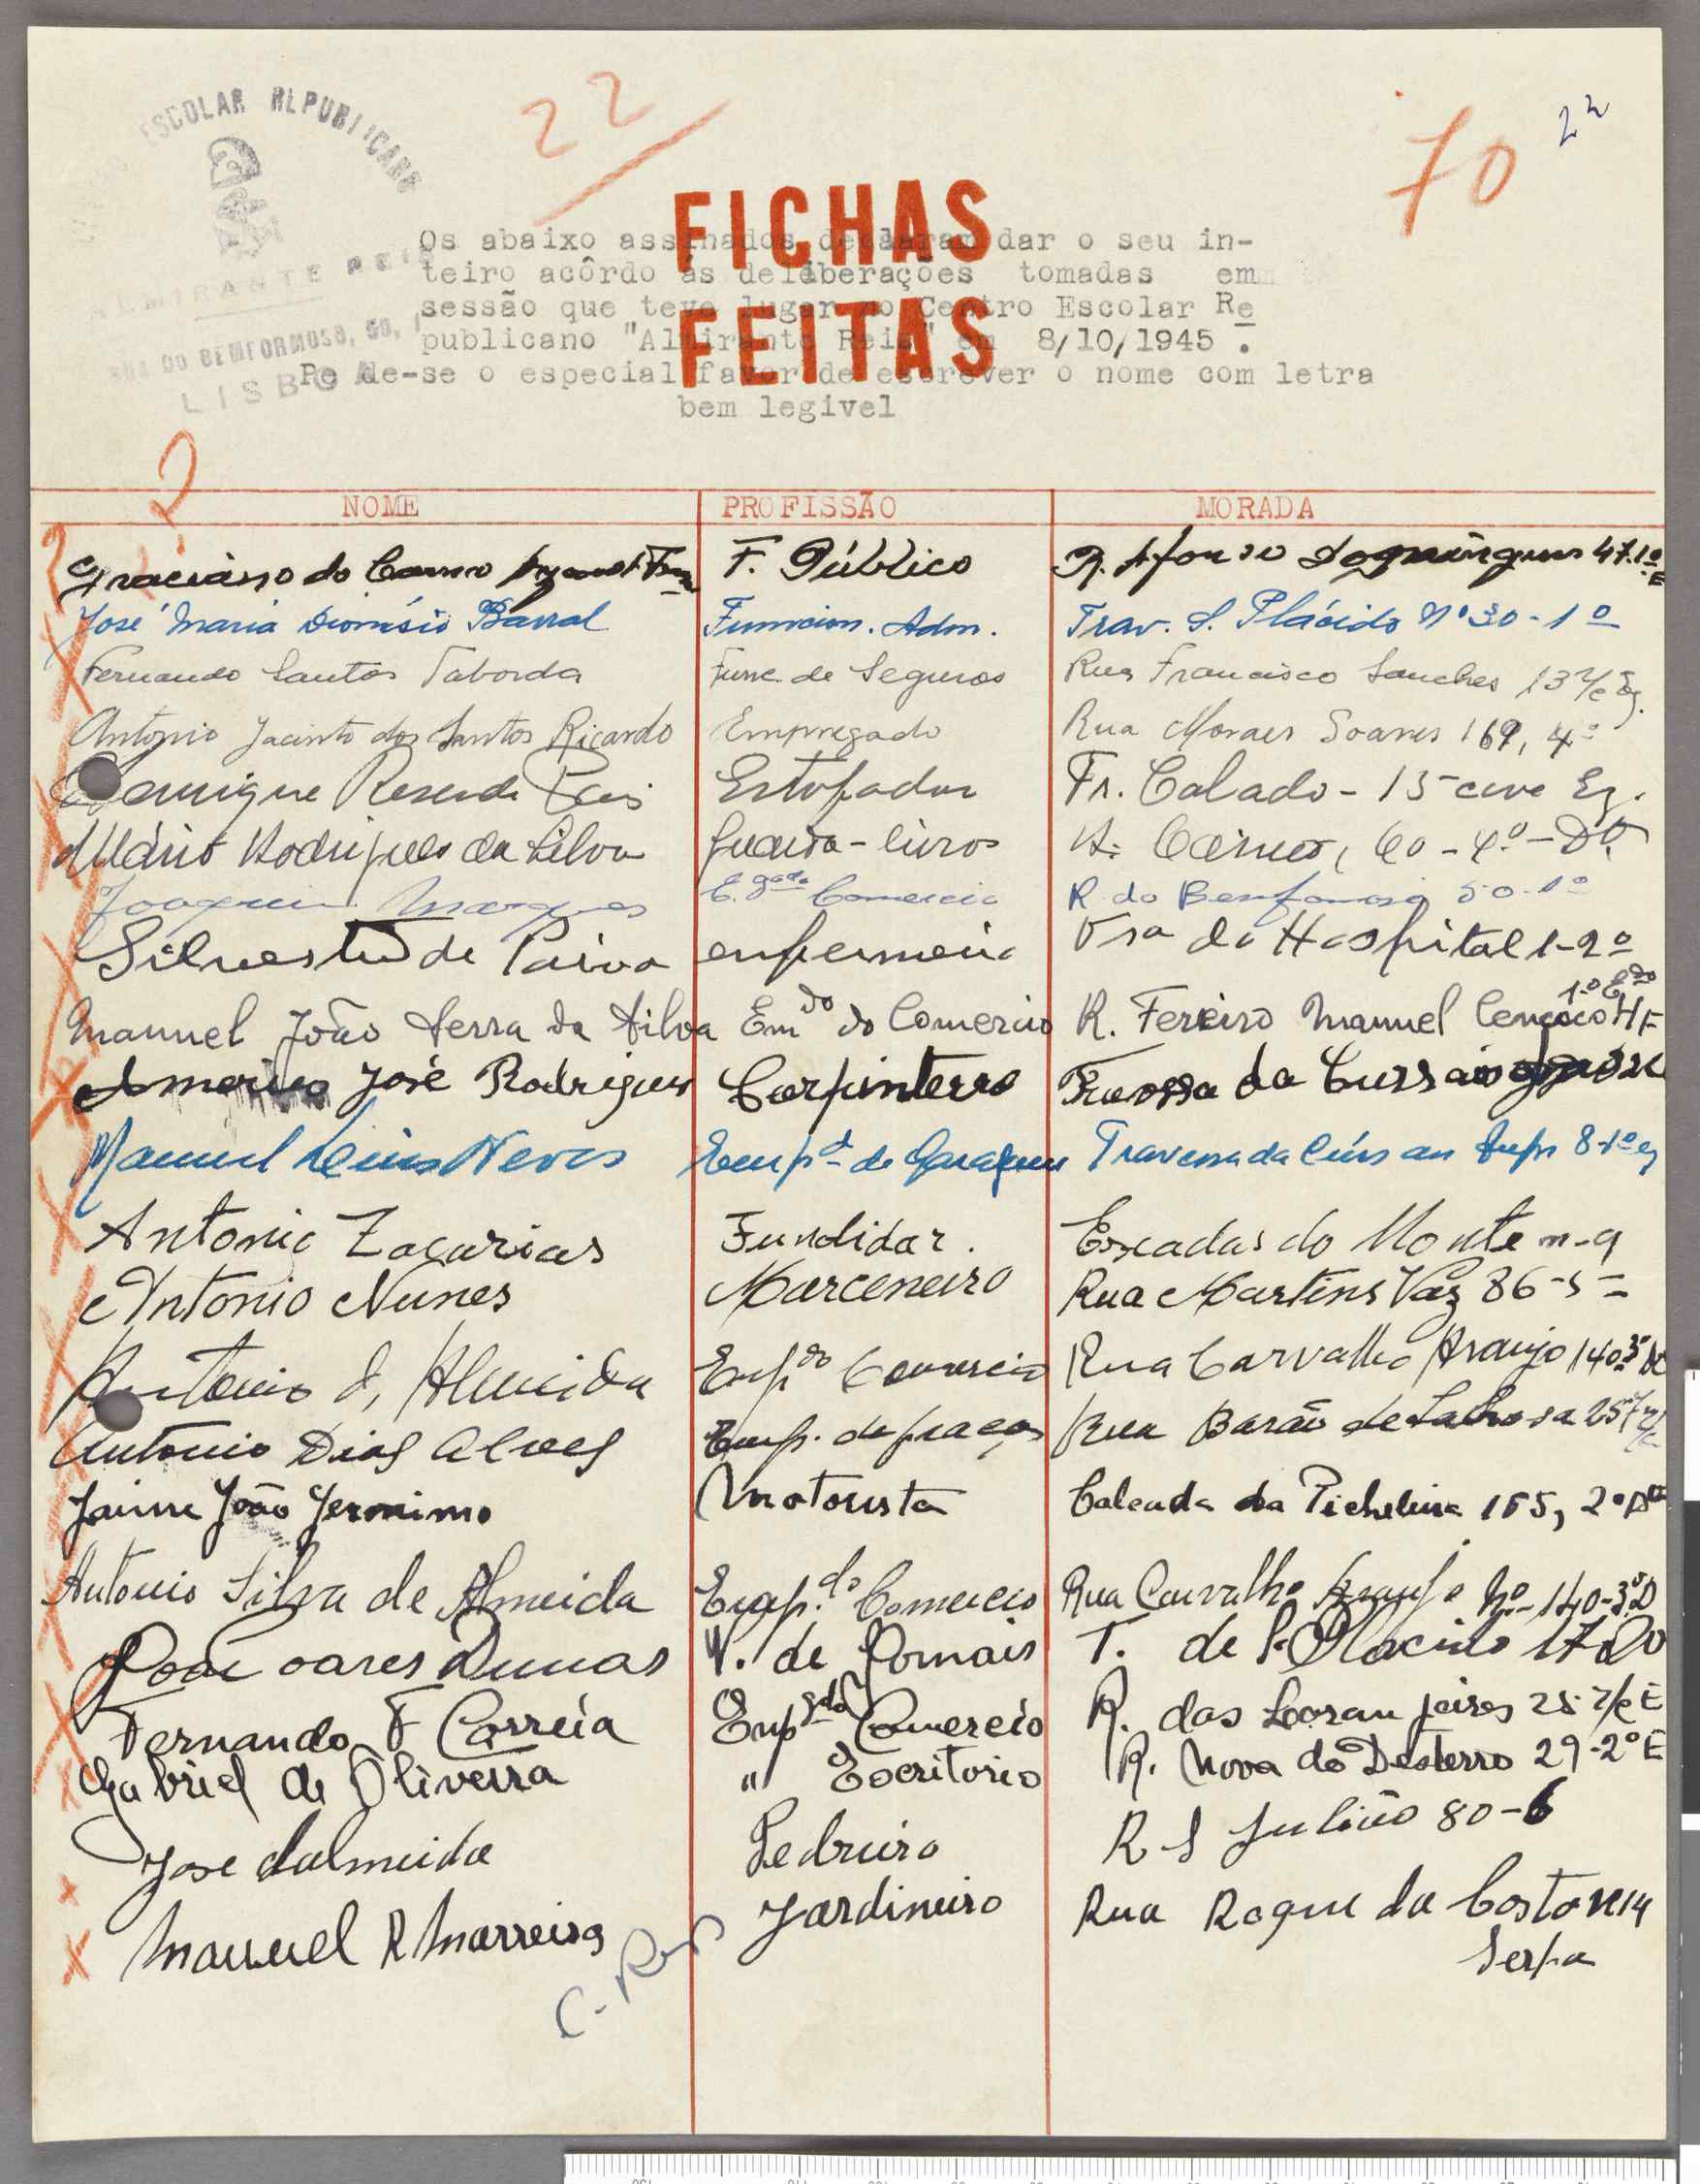 ESCOLAR REPUBLICANO
22
70
22
ALMIRANTE REIS
RUA DO BEMFORMOSO, 50, 1
LISBOA
FICHAS
FEITAS
Os abaixo assinados declaram dar o seu in-
teiro acôrdo ás deliberações tomadas em
sessão que teve lugar no Centro Escolar Re
publicano "Almirante Reis" em 8/10/1945 .
Pe de-se o especial favor de escrever o nome com letra
bem legivel
?
NOME PROFISSÃO MORADA
Graciano do Carmo F. Público R. Afonso Domingues 47.1º E
José Maria Dionísio Barral Funcion. Adm. Trav. S. Plácido Nº 30-1º
Fernando Santos Taborda Func. de Seguros Rua Francisco Sanches 13 r/c Eq.
Antonio Jacinto dos Santos Ricardo Empregado Rua Moraes Soares 169, 4º
Henrique Resende Estofador Fr. Calado - 15 cave Eq.
Mário Rodrigues da Silva guarda-livros 60-4º-Dº
Joaquim Marques E.gado Comercio R. do Benformoso 50-1º
Silvestre de Paiva enfermeiro Tra do Hospital 1-2º
Manuel João Serra da Silva Emdo do Comercio R. Manuel 1º Edo
Americo José Rodrigues Carpinterro Travessa da
Manuel Luis Neves Empº de Garagem Travessa da 8-1º
Antonio Zacarias Fundidor. Escadas do Monte n-9
Antonio Nunes Marceneiro Rua Martins Vaz 86-5-
Antonio S, Almida Empdo Comercio Rua Carvalho Araujo 140 3º
Antonio Dias Alves Emp. de praça Rua Barão de Sabrosa 25
Jaime João Jeronimo Motorista Calcada da Picheleira 155, 2º
Antonio Silva de Almeida Emp.do Comercio Rua Carvalho Araujo Nº-140-3ºD
oares Dumas V. de Jornais T. de S. Placido 17
Fernando F Correia Empgdo Comercio R. das Laranjeiras 25 r/c E
Gabriel de Oliveira " Escritorio R. Nova do Desterro 29-2º E
Jose dalmeida Pedreiro R S Julião 80-6
Manuel R Marreiros Jardineiro Rua Roque da Costa N14
C. Rego